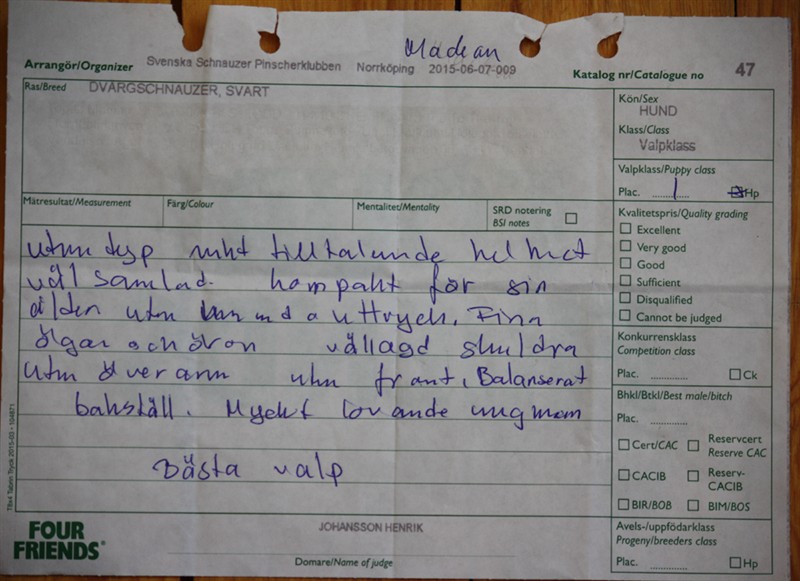 Madean
Arrangör/Organizer Svenska Schnauzer Pinscherklubben Norrköping 2015-06-07-009 Katalog nr/Catalogue no 47
Ras/Breed DVÄRGSCHNAUZER, SVART
Kön/Sex
HUND
Klass/Class
Valpklass
Valpklass/Puppy class
Plac. 1 Hp
Mätresultat/Measurement Färg/Colour Mentalitet/Mentality SRD notering
BSI notes
Kvalitetspris/Quality grading
Excellent
Very good
Good
Sufficient
Disqualified
Cannot be judged
Konkurrensklass
Competition class
Plac. Ck
Bhkl/Btkl/Best male/bitch
Plac.
Cert/CAC Reservcert
Reserve CAC
CACIB Reserv-
CACIB
BIR/BOB BIM/BOS
Avels-/uppfödarklass
Progeny/breeders class
Plac. Hp
utm typ mkt tilltalande helhet
väl samlad. kompakt för sin
ålder utm uttryck. Fina
ögon och öron vällagd skuldra
utm överarm utm front. Balanserat
bakställ. Mycket lovande
Bästa valp
JOHANSSON HENRIK
Domare/Name of judge
FOUR
FRIENDS®
T8x4 Tabrin Tryck 2015-03 • 104871